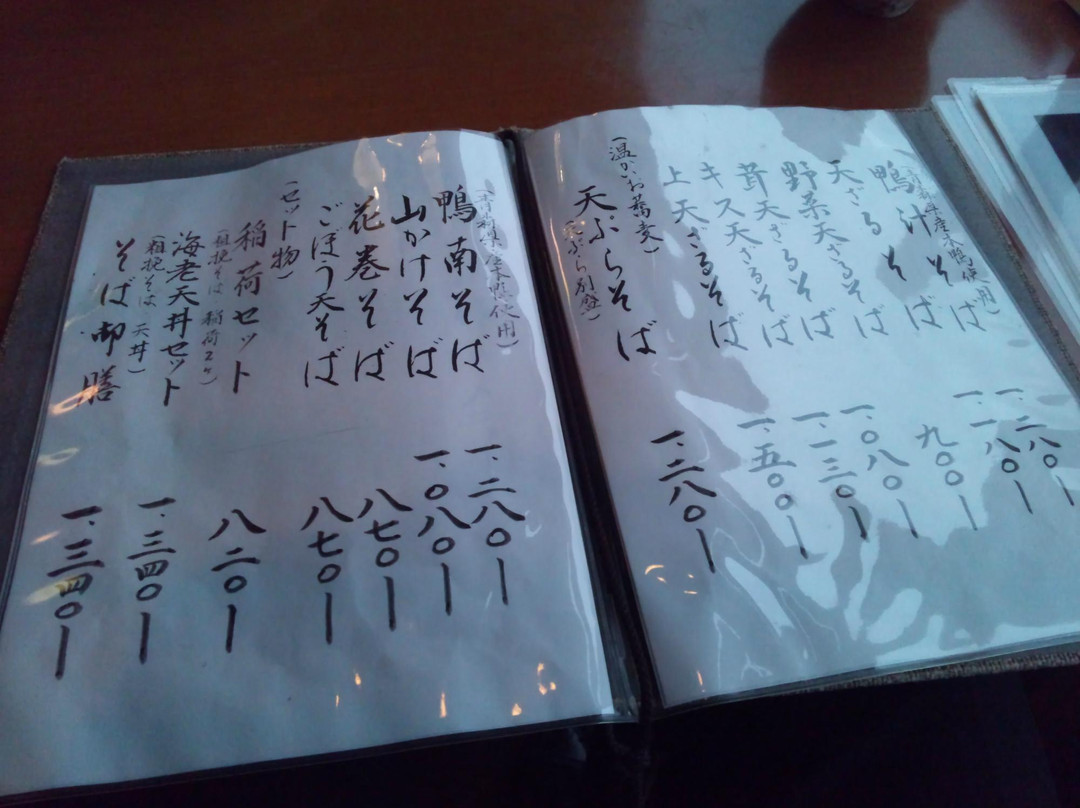 産本鴨使用)
鴨汁そば 一、二八〇ー
天ざるそば 一、一八〇ー
野菜天ざるそば 九〇〇ー
茸天ざるそば 一、〇八〇ー
キス天ざるそば 一、一三〇ー
上天ざるそば 一、五〇〇ー
(温かいお蕎麦)
天ぷらそば 一、二八〇ー
(天ぷら別盛)
産本鴨使用)
鴨南そば 一、二八〇ー
山かけそば 一、〇八〇ー
花巻そば 八七〇ー
ごぼう天そば 八七〇ー
(セット物)
稲荷セット 八二〇ー
(粗挽そば 稲荷2ヶ)
海老天丼セット 一、三四〇ー
(粗挽そば 天丼)
そば御膳 一、三四〇ー